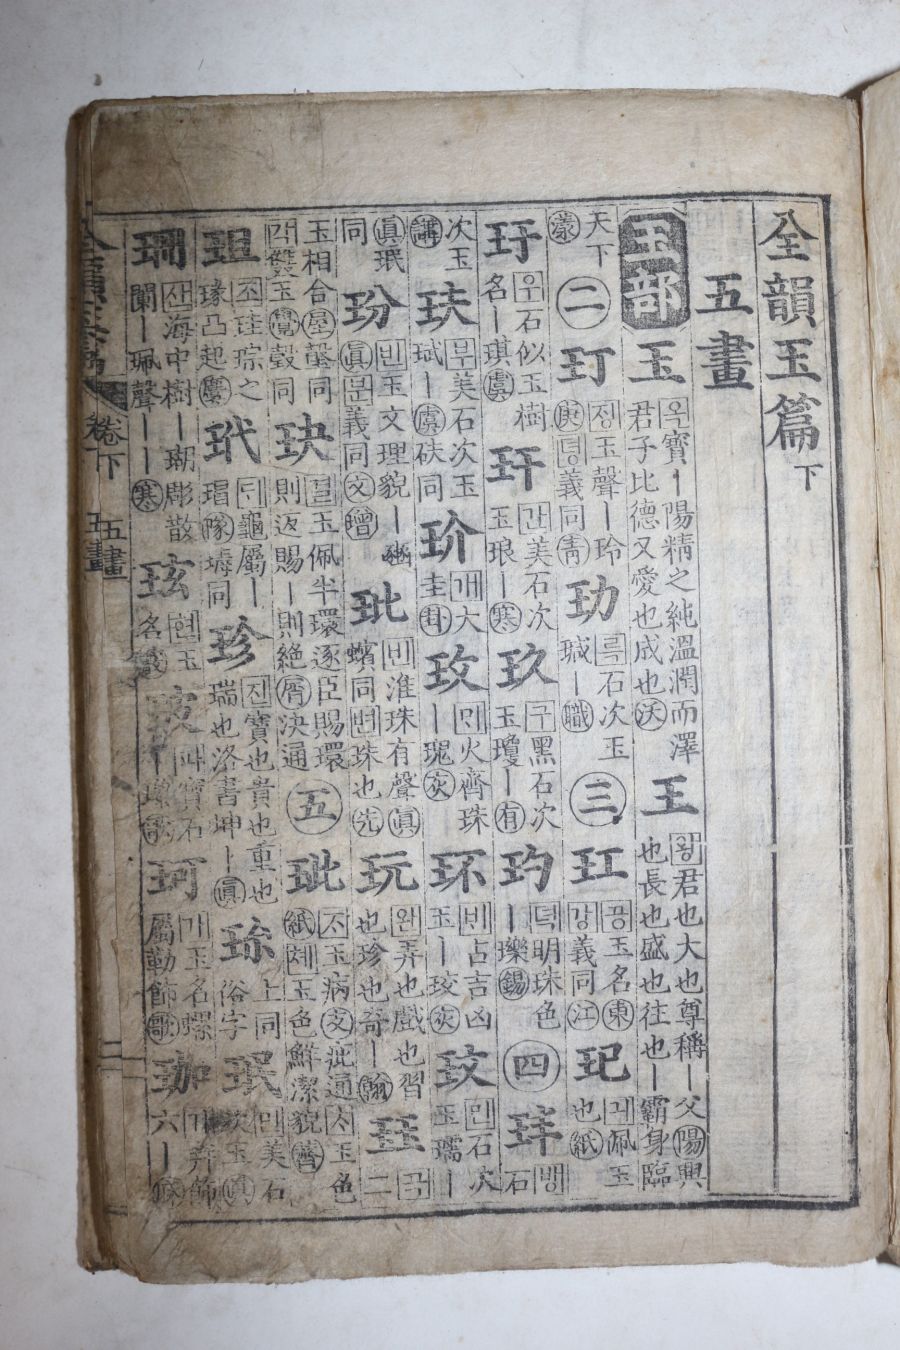 全韻玉篇下
五畫
玉部 玉 옥寶ㅣ陽精之純溫潤而澤君子比德又愛也成也沃 王 왕君也大也尊稱ㅣ父陽興也長也盛也往也ㅣ霸身臨
天下漾 二 玎 정玉聲ㅣ玲庚뎡義同靑 玏 륵石次玉瑊ㅣ職 三 玒 공玉名東강義同江 玘 긔佩玉也紙
玗 우石似玉樹名ㅣ琪虞 玕 간美石次玉琅ㅣ寒 玖 구黑石次玉瓊ㅣ有 玓 뎍明珠色ㅣ瓅錫 四 玤 石
次玉講 玞 부美石次玉珷ㅣ虞砆同 玠 개大圭卦 玫 火齊珠ㅣ瑰灰 环 占吉凶玉ㅣ珓灰 玟 민石次玉瓀ㅣ
眞珉同 玢 빈玉文理貌ㅣ豳眞문義同文 玭 빈淮珠有聲眞蠙同변珠也先 玩 완弄也戲也習也珍也奇ㅣ翰 玨 곡二
玉相合屋瑴同각雙玉覺瑴同 玦 결玉佩半環逐臣賜環則返賜ㅣ則絶屑決通 五 玼 玉病支疵通 玉色紙쳬玉色鮮潔貌薺
珇 조珪琮之瑑凸起麌 玳 龜屬ㅣ瑁隊瑇同 珍 진寶也貴也重也瑞也洛書坤ㅣ眞 珎 上同俗字 珉 민美石次玉眞
珊 산海中樹ㅣ瑚彫散闌ㅣ珮聲ㅣㅣ寒 玹 현玉名 玻 파寶石 歌 珂 가玉名螺屬勒飾歌 珈 가笄飾六ㅣ麻
全韻玉篇 卷下 五畫 二